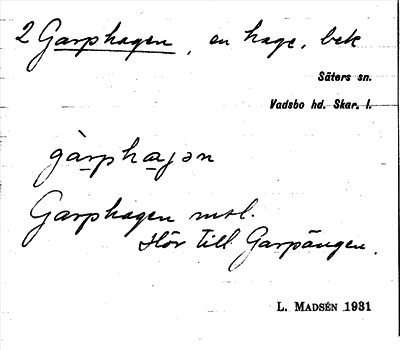 2 Garphagen, en hage, bek
Säters sn.
Vadsbo hd. Skar. l.
gàrphaɡən
Garphagen msl.
Hör till Garpängen.
L. Madsén 1931